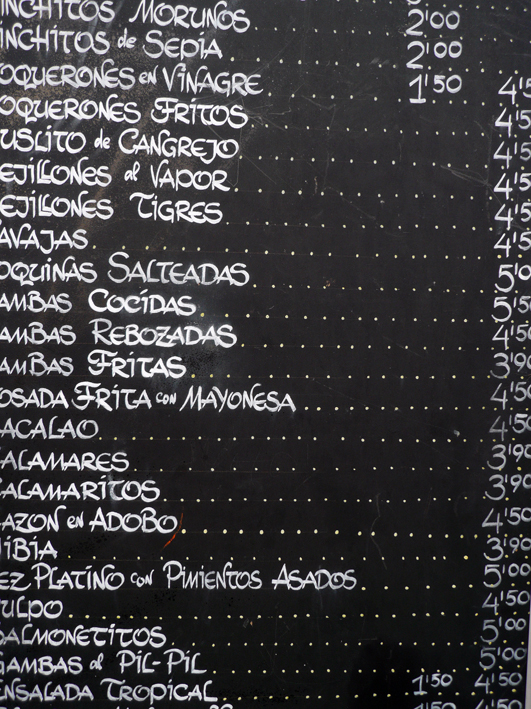 INCHITOS MORUNOS 2'00
INCHITOS de SEPIA 2'00
OQUERONES en VINAGRE 1'50 4'5
OQUERONES FRITOS 4'5
USLITO de CANGREJO 4'5
EJILLONES al VAPOR 4'5
EJILLONES TIGRES 4'5
AVAJAS 4'5
OQUINAS SALTEADAS 5'0
AMBAS COCIDAS 5'0
AMBAS REBOZADAS 4'50
AMBAS FRITAS 3'90
OSADA FRITA con MAYONESA 4'50
ACALAO 4'50
ALAMARES 3'90
ALAMARITOS 3'90
AZON en ADOBO 4'50
IBIA 3'90
EZ PLATINO con PIMIENTOS ASADOS 5'00
ULPO 4'50
SALMONETITOS 5'00
GAMBAS al PIL-PIL 5'00
ENSALADA TROPICAL 1'50 4'50